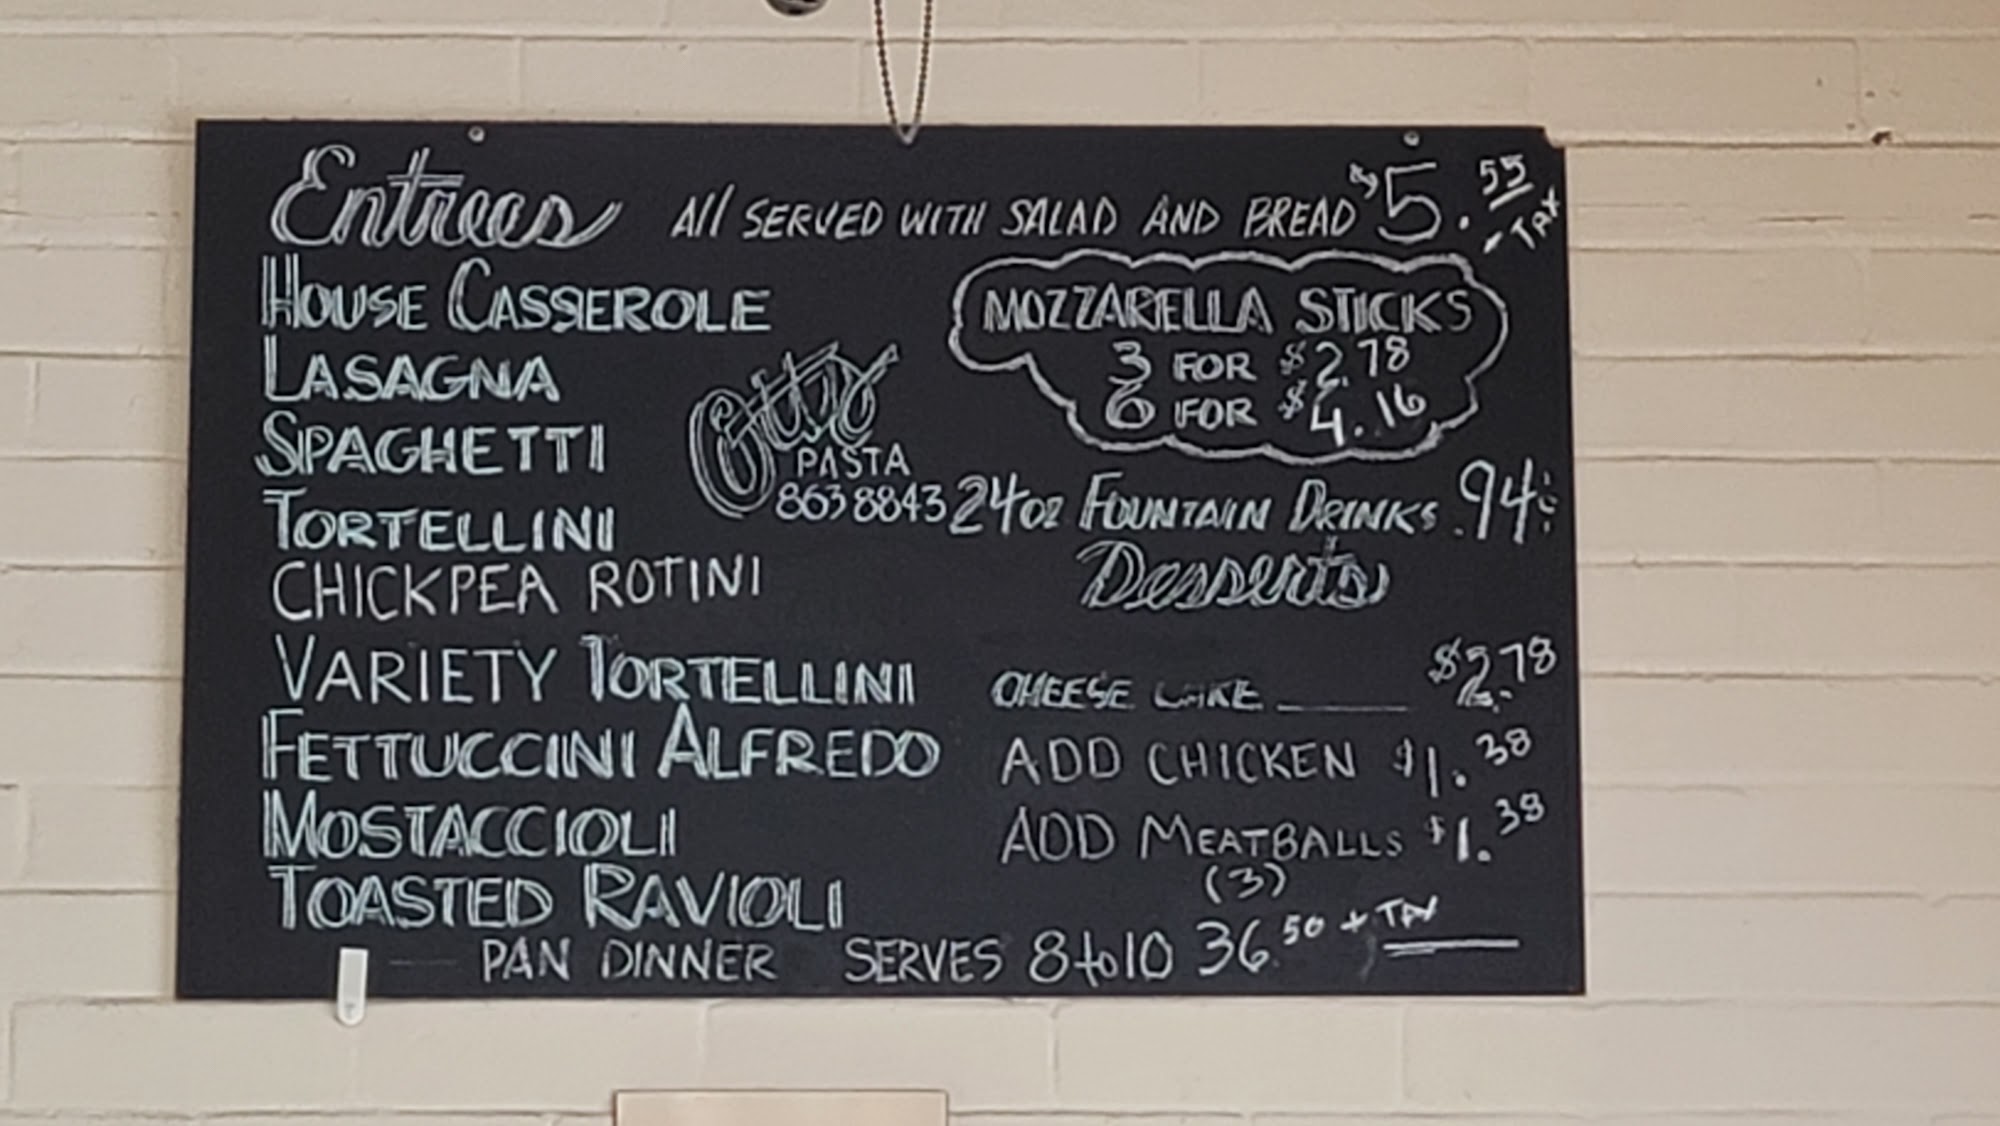 Entrees All SERVED WITH SALAD AND BREAD $5.55
- TAX
HOUSE CASSEROLE
LASAGNA
SPAGHETTI
TORTELLINI
CHICKPEA ROTINI
VARIETY TORTELLINI
FETTUCCINI ALFREDO
MOSTACCIOLI
TOASTED RAVIOLI
PASTA
863 8843
MOZZARELLA STICKS
3 FOR $2.78
6 FOR $4.16
24oz FOUNTAIN DRINKS .94¢
Desserts
CHEESE CAKE $2.78
ADD CHICKEN $1.38
ADD MEATBALLS $1.38
(3)
PAN DINNER SERVES 8 to 10 36.50 + TAX